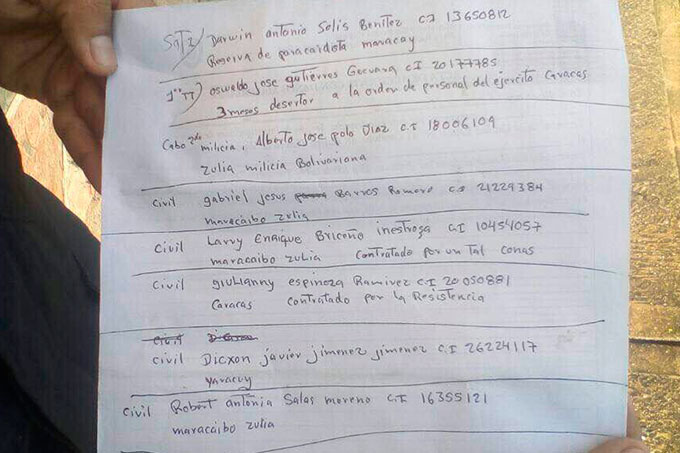 Darwin antonio Solis Benitez CI 13650812
Reserva de paracaidista maracay
1er TT) oswaldo jose gutierres Guevara CI 20177785
3 meses desertor a la orden de personal del ejercito Caracas
Cabo 2do milicia, Alberto jose polo Diaz C.I 18006109
Zulia milicia Bolivariana
civil gabriel jesus Barros Romero CI 21229384
maracaibo zulia
civil Larry Enrique Briceño inestroza CI 10454057
maracaibo zulia Contratado por un tal conas
civil giulianny espinoza Ramirez C.I 20050881
Caracas contratado por la Resistencia
civil
civil Dicxon javier jimenez jimenez C.I 26224117
Yaracuy
civil Robert antonia Salas moreno C.I 16355121
maracaibo zulia